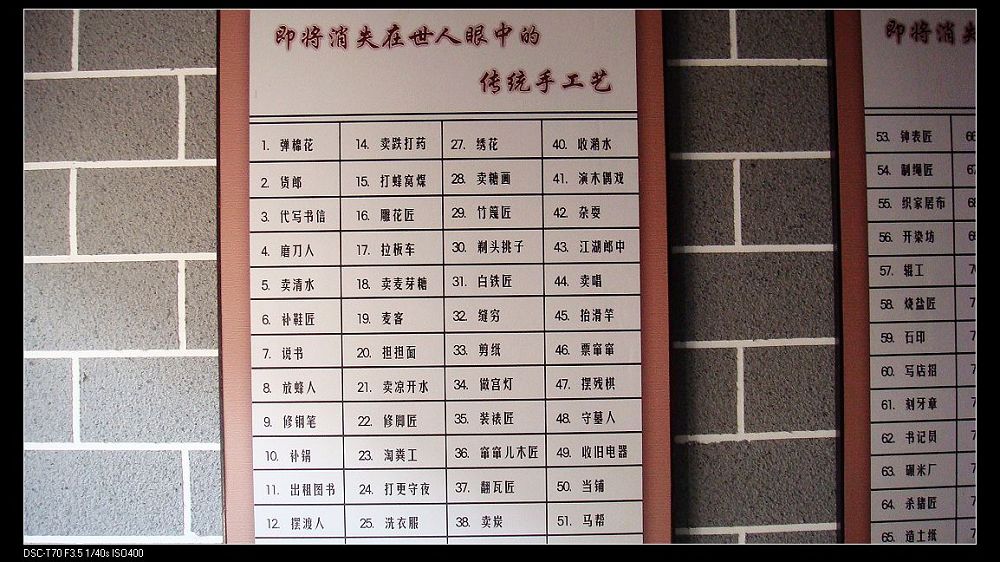 即将消失在世人眼中的
传统手工艺
1. 弹棉花 14. 卖跌打药 27. 绣花 40. 收潲水
2. 货郎 15. 打蜂窝煤 28. 卖糖画 41. 演木偶戏
3. 代写书信 16. 雕花匠 29. 竹篾匠 42. 杂耍
4. 磨刀人 17. 拉板车 30. 剃头挑子 43. 江湖郎中
5. 卖清水 18. 卖麦芽糖 31. 白铁匠 44. 卖唱
6. 补鞋匠 19. 麦客 32. 缝穷 45. 抬滑竿
7. 说书 20. 担担面 33. 剪纸 46. 票窜窜
8. 放蜂人 21. 卖凉开水 34. 做宫灯 47. 摆残棋
9. 修钢笔 22. 修脚匠 35. 装裱匠 48. 守墓人
10. 补锅 23. 淘粪工 36. 窜窜儿木匠 49. 收旧电器
11. 出租图书 24. 打更守夜 37. 翻瓦匠 50. 当铺
12. 摆渡人 25. 洗衣服 38. 卖炭 51. 马帮
即将消失
53. 钟表匠
54. 制绳匠
55. 织家居布
56. 开染坊
57. 辊工
58. 烧盐匠
59. 石印
60. 写店招
61. 刻牙章
62. 书记员
63. 碾米厂
64. 杀猪匠
65. 造土纸
DSC-T70 F3.5 1/40s ISO400